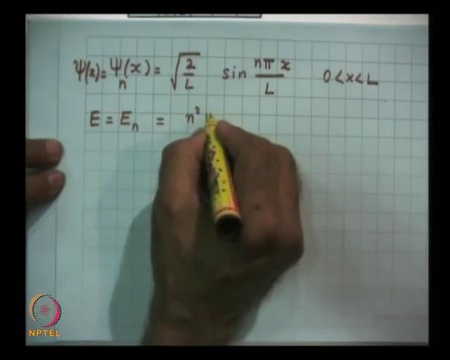 Ψ(x) = Ψₙ(x) = √(2/L) sin nπx/L 0<x<L
E = Eₙ = n²
NPTEL